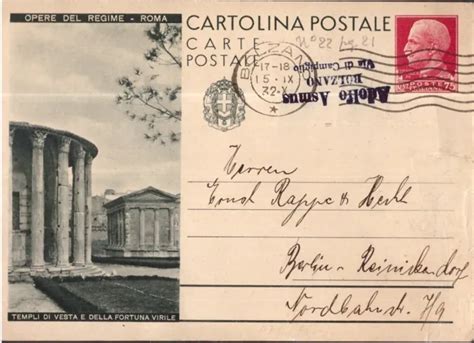 OPERE DEL REGIME - ROMA
CARTOLINA POSTALE
CARTE
POSTALE
Nº 22 pg. 21
BOLZANO
17-18
15.IX
32-X
Adolfo Asmus
BOLZANO
Via di Campiglio
POSTE
75
Herren
Ernst Rappe & Hecht
Berlin - Reinickendorf
Nordbahnstr. 7/9
TEMPLI DI VESTA E DELLA FORTUNA VIRILE